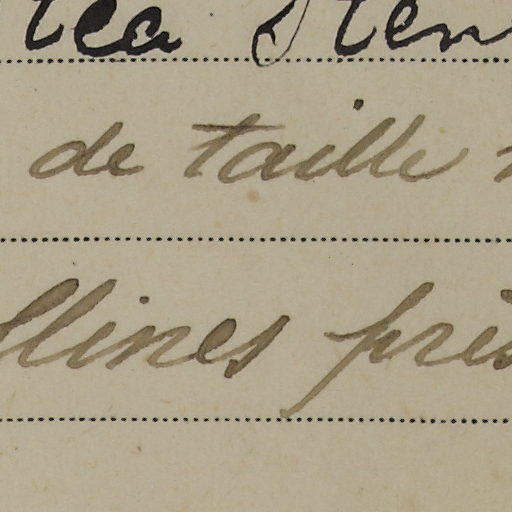 tea Sten
de taille
llines près